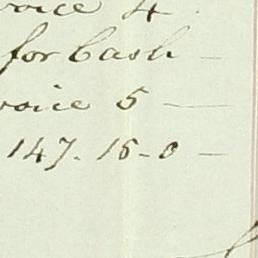 voice 4.
for Cash —
voice 5 —
147. 15-0 —